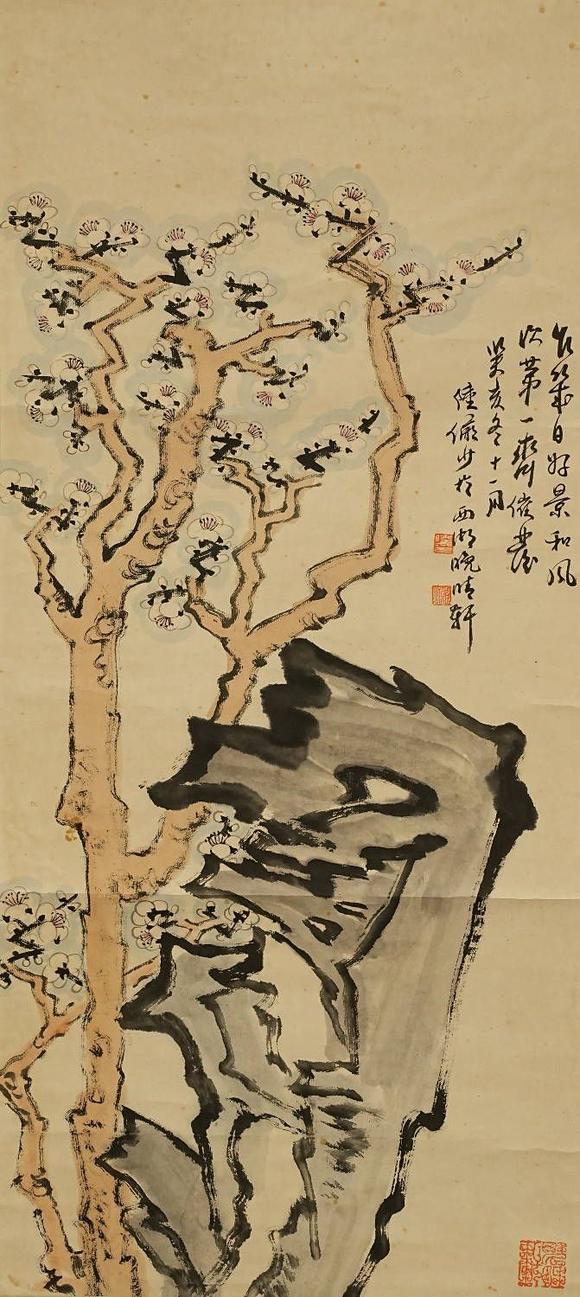 日好景和風
次第一齊催發
癸亥冬十一月
陸儼少於西湖晚晴軒